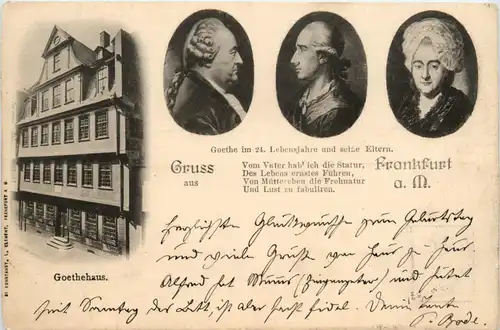 Goethe im 24. Lebensjahre und seine Eltern.
Gruss aus
Vom Vater hab' ich die Statur,
Des Lebens ernstes Führen,
Von Mütterchen die Frohnatur
Und Lust zu fabuliren.
Frankfurt a. M.
Goethehaus.
Herzlichste Glückwünsche zum Geburtstag
und viele Grüße von Haus zu Haus.
Alfred hat Mums (Ziegenpeter) und hütet
seit Sonntag das Bett, ist aber sehr fidel. Deine Tante
Bode.